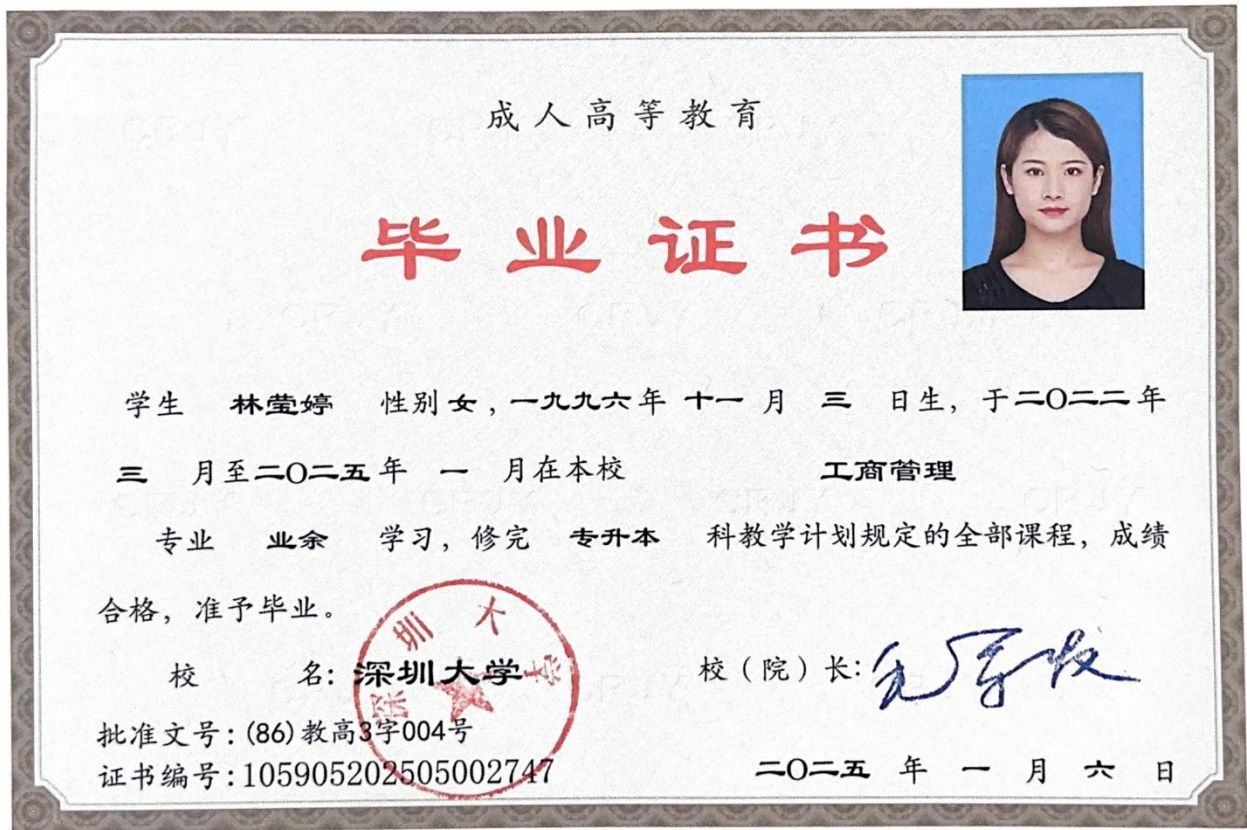 成人高等教育
毕业证书
学生 林莹婷 性别 女，一九九六年 十一 月 三 日生，于二〇二二年
三 月至二〇二五年 一 月在本校 工商管理
专业 业余 学习，修完 专升本 科教学计划规定的全部课程，成绩
合格，准予毕业。
深圳大学
校 名：深圳大学 校（院）长：
批准文号：(86)教高3字004号
证书编号：105905202505002747 二〇二五 年 一 月 六 日